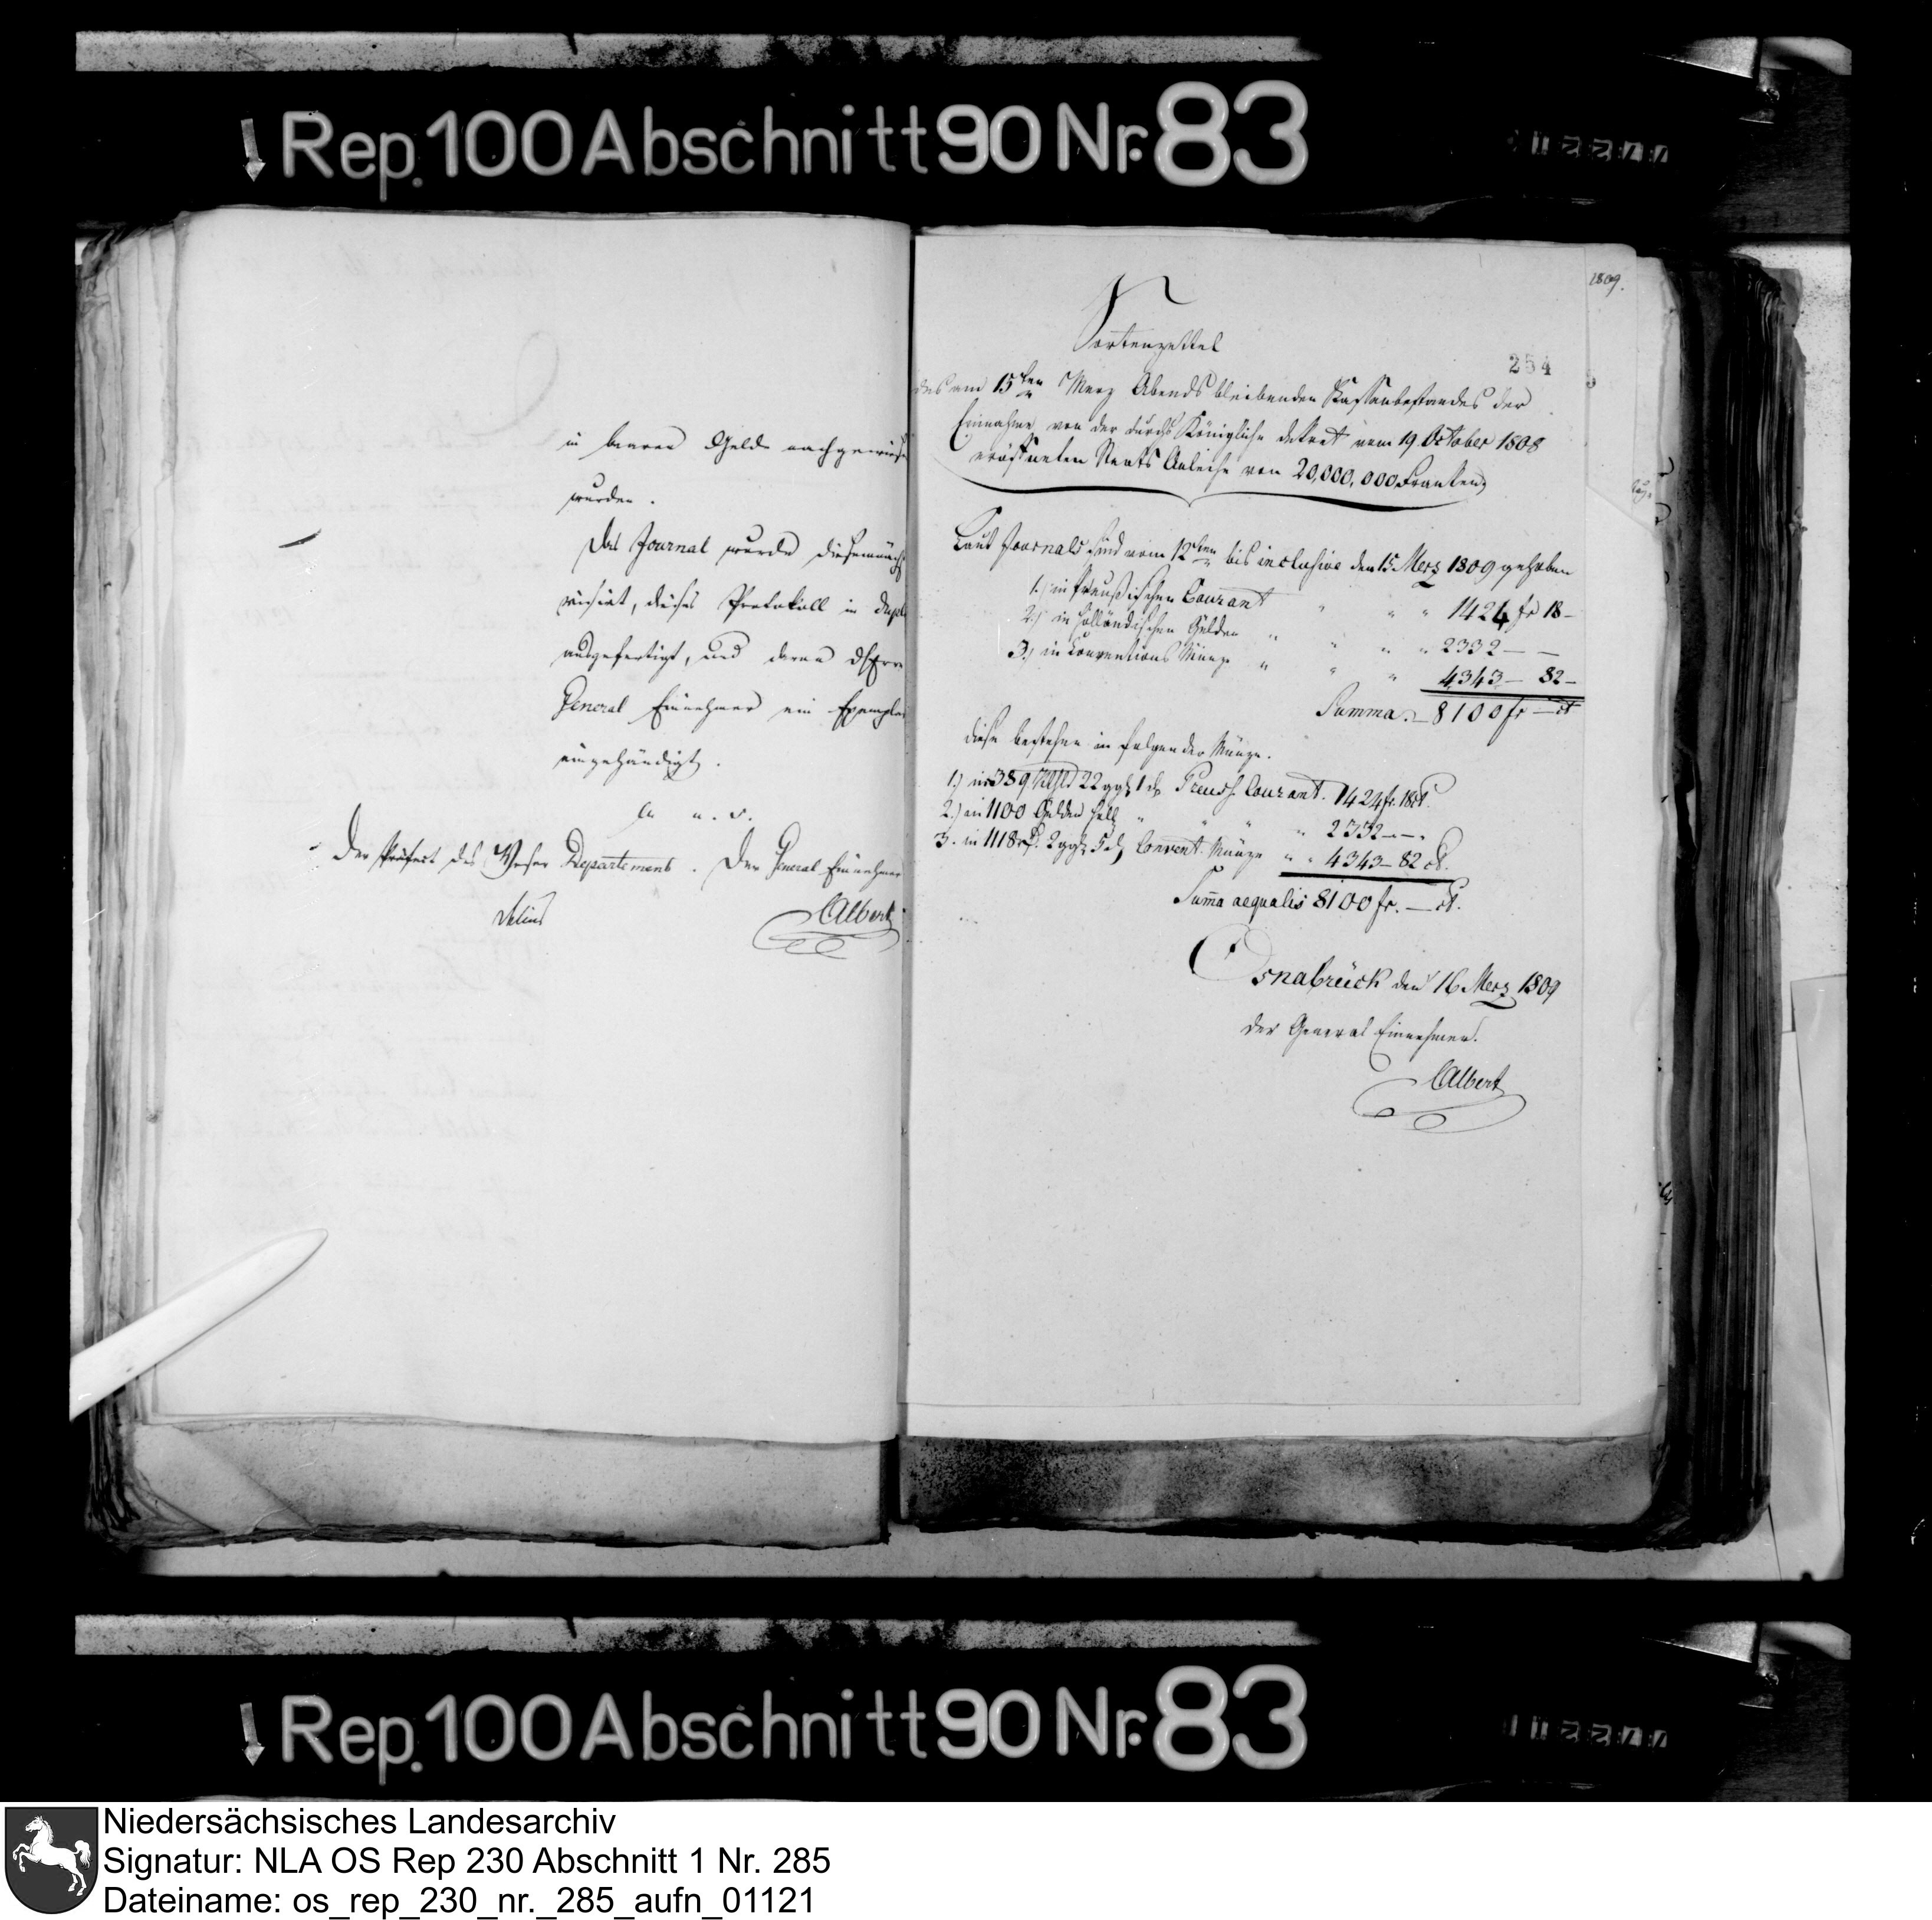 Rep. 100 Abschnitt 90 Nr. 83
in baaren Gelde nachgewiesen
wurden.
Das Journal wurde diesemnächst
visirt, dieses Protokoll in duplo
ausgefertigt, und davon dHerrn
General Einnehmer ein Exemplar
eingehändigt.
a. u. s.
Der Präfect des Weser Departements. Der General Einnehmer
Delius Albert
1809.
254
Sortenzettel
des am 15ten Merz Abends bleibenden Kassenbestandes der
Einnahme von der durchs Königliche dekret vom 19 October 1808
eröffneten Staats Anleihe von 20,000,000 Franken
Laut Journals sind vom 12ten bis inclusive den 15 Merz 1809 gehoben
1.) in Preußischen Courant " " " 1424 fr 18 –
2.) in holländischen Gulden " " " " 2332 – –
3.) in Conventions Münze " " " 4343 – 82 –
Summa. – 8100 fr – ct
diese bestehen in folgender Münze.
1.) in 389 22 ggr 1 d Preuss. Courant. 1424 fr. 18 ct.
2.) in 1100 Gulden holl " " " " 2332 – – .
3. in 1118 2 ggr 5 d Convent. Münze " " 4343 – 82 ct.
Summa aequalis 8100 fr. – ct.
Osnabrück den 16 Merz 1809
der General Einnehmer.
Albert
Rep. 100 Abschnitt 90 Nr. 83
Niedersächsisches Landesarchiv
Signatur: NLA OS Rep 230 Abschnitt 1 Nr. 285
Dateiname: os_rep_230_nr._285_aufn_01121